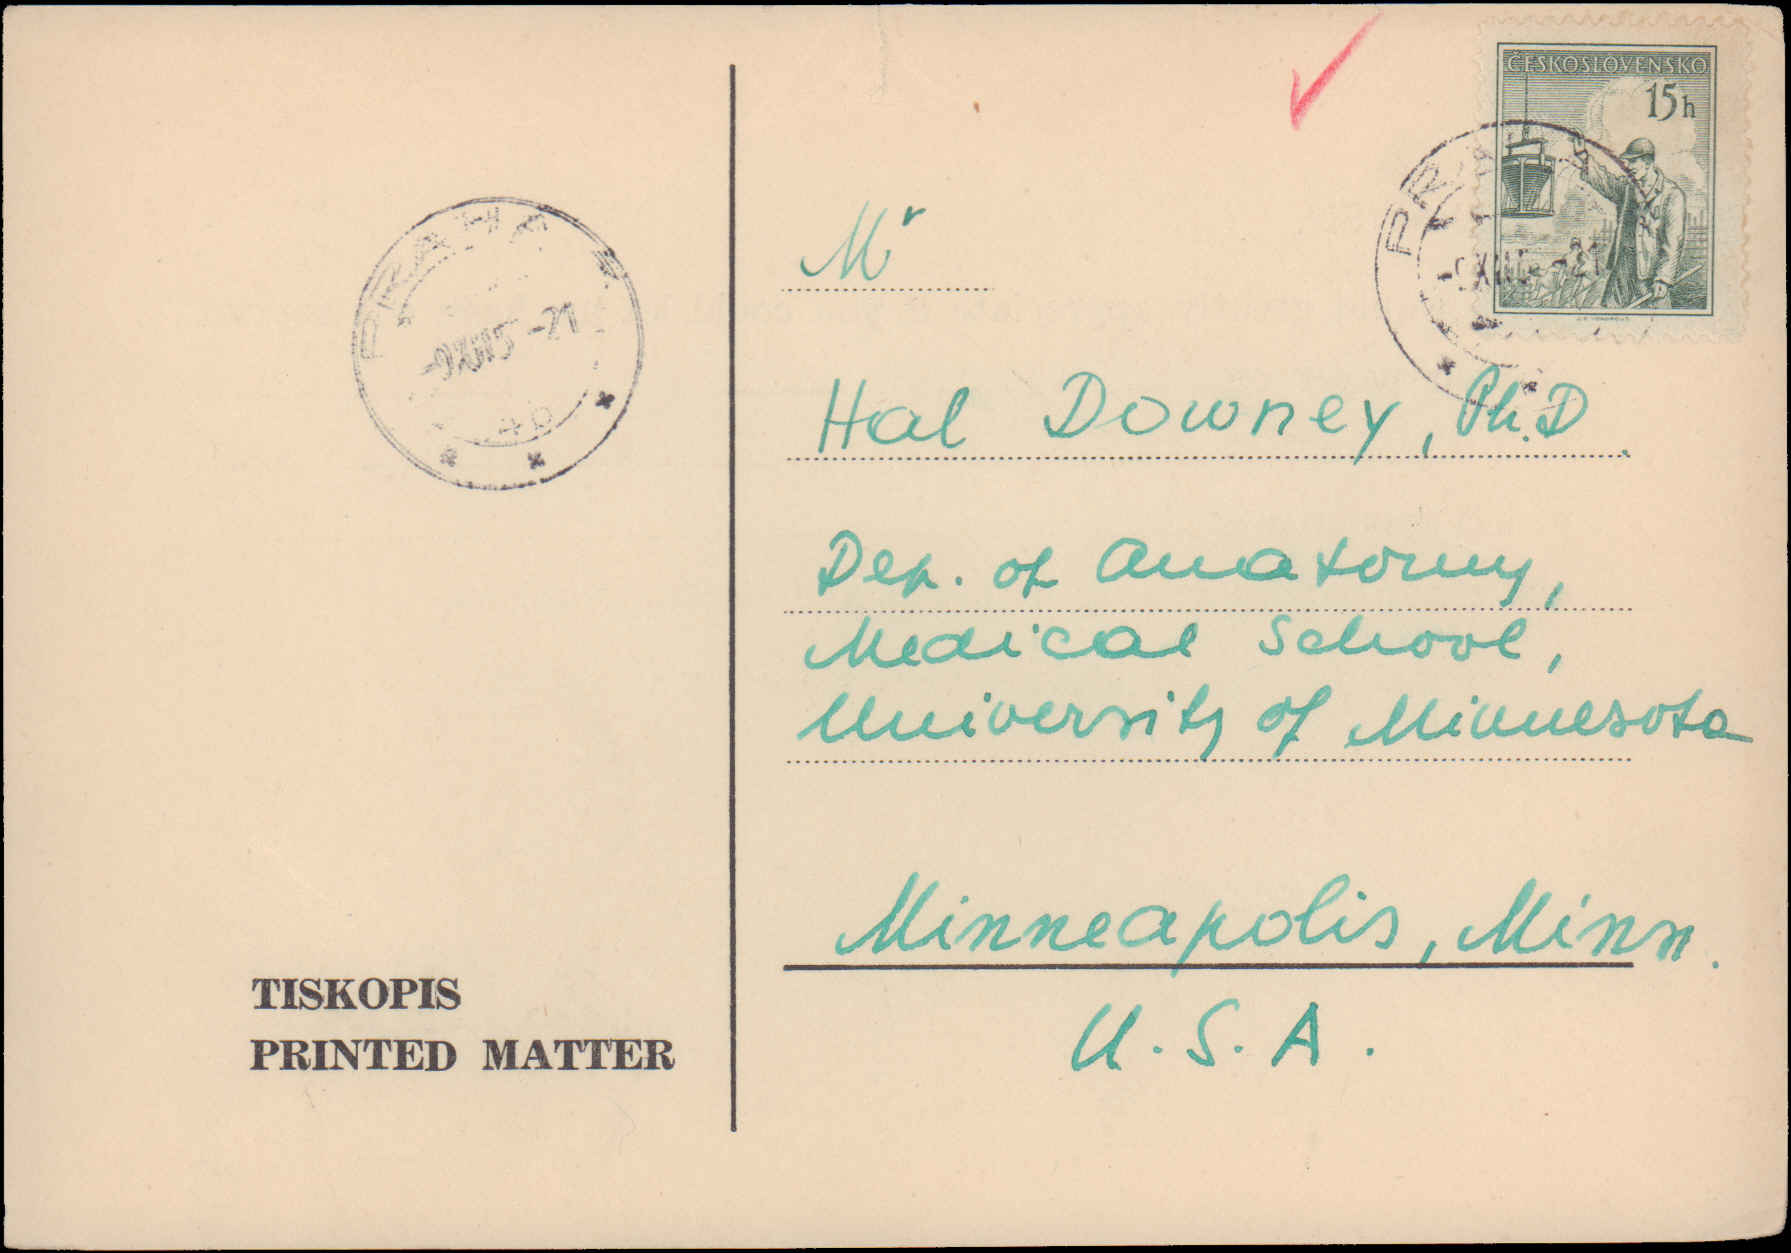 ČESKOSLOVENSKO
15h
PRAHA
Mr
Hal Downey, Ph.D.
Dep. of Anatomy,
Medical School,
University of Minnesota
Minneapolis, Minn.
U.S.A.
TISKOPIS
PRINTED MATTER